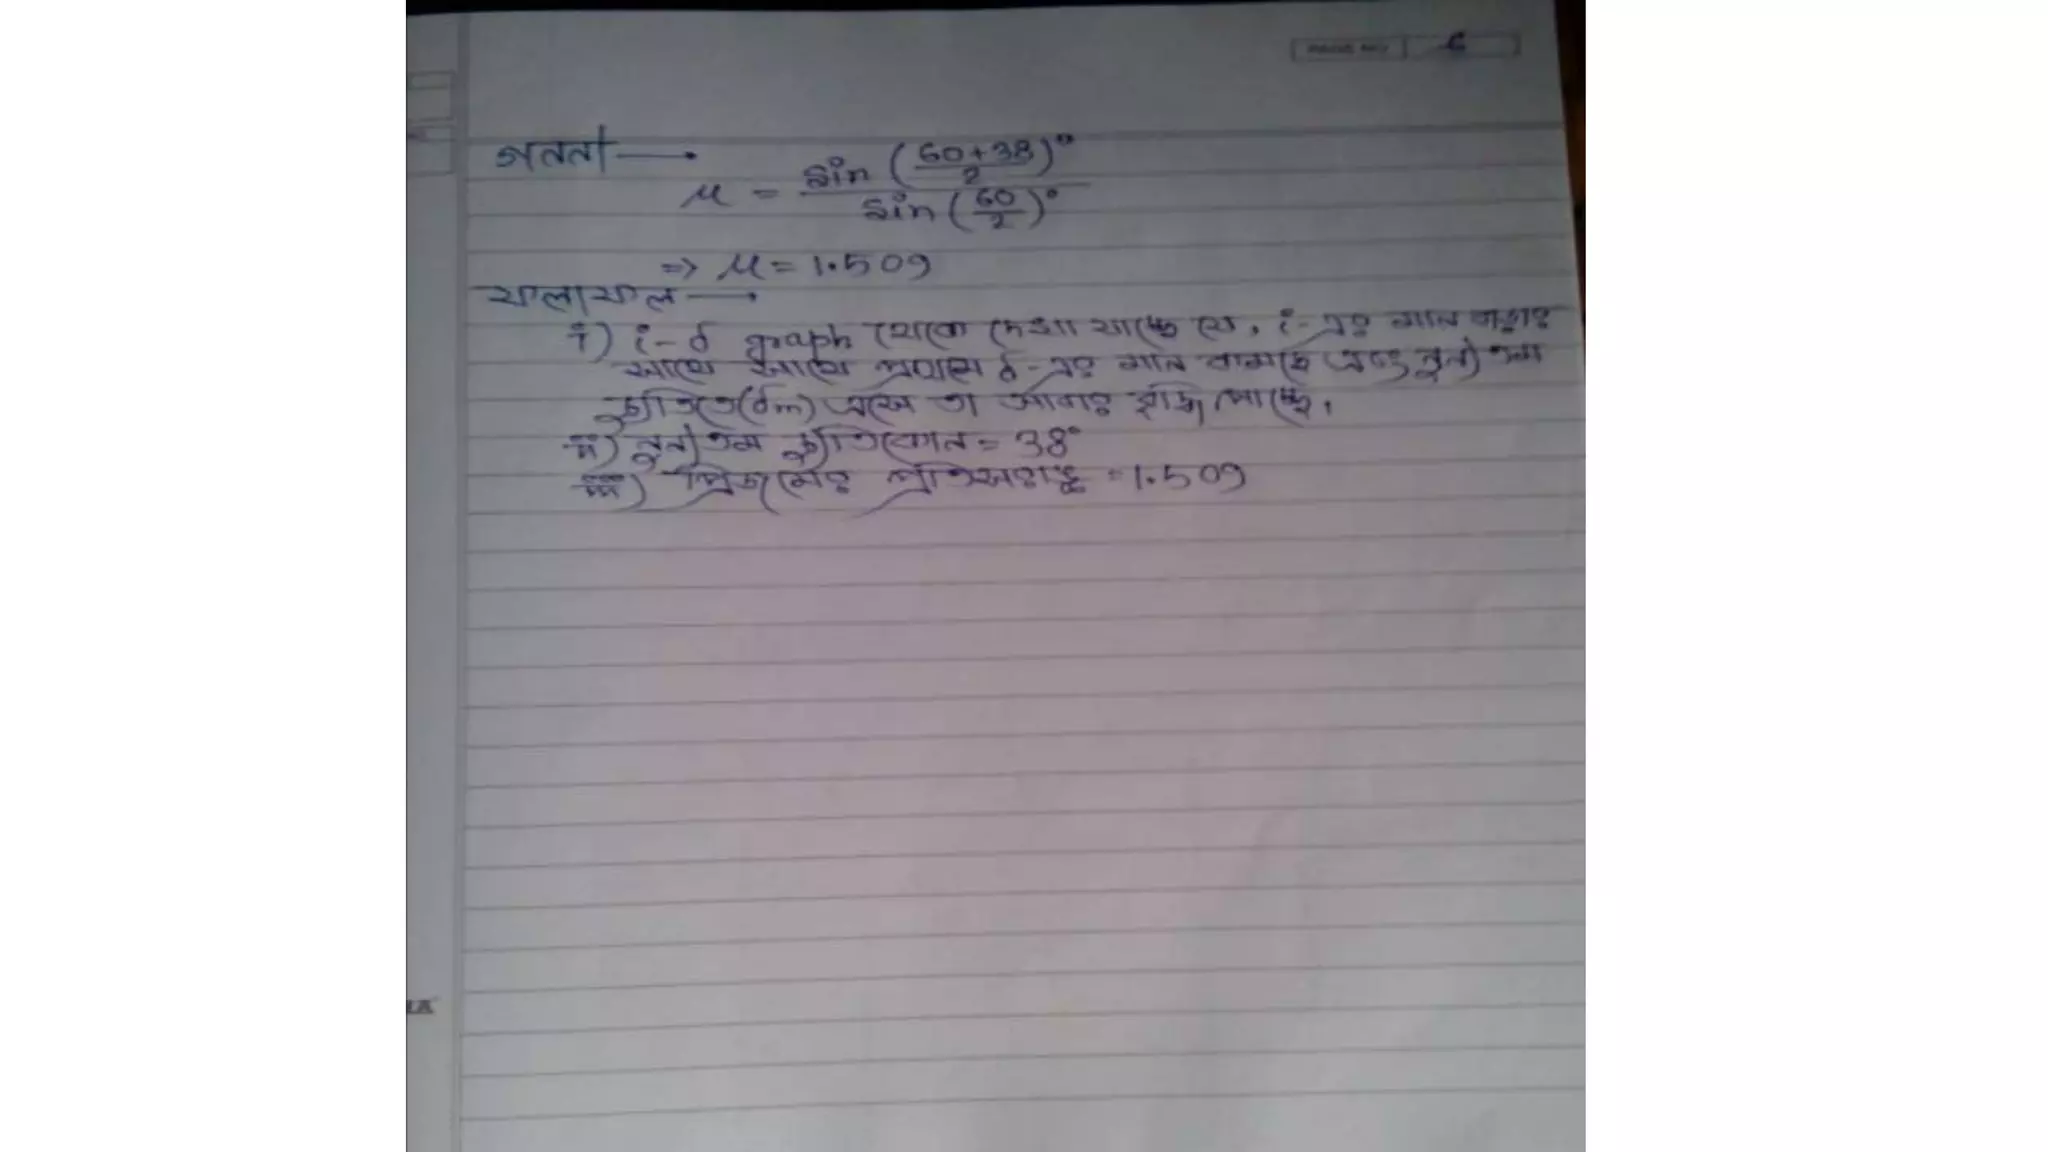 PAGE NO 6
গননা →
μ = sin (60+38/2)° / sin (60/2)°
⇒ μ = 1.509
ফলাফল →
i) i-δ graph থেকে দেখা যাচ্ছে যে, i-এর মান বাড়ার
সাথে সাথে প্রথমে δ-এর মান কমছে এবং নূন্যতম
চ্যুতিতে (δm) এসে তা আবার বৃদ্ধি পাচ্ছে,
ii) নূন্যতম চ্যুতিকোন = 38°
iii) প্রিজমের প্রতিসরাঙ্ক = 1.509